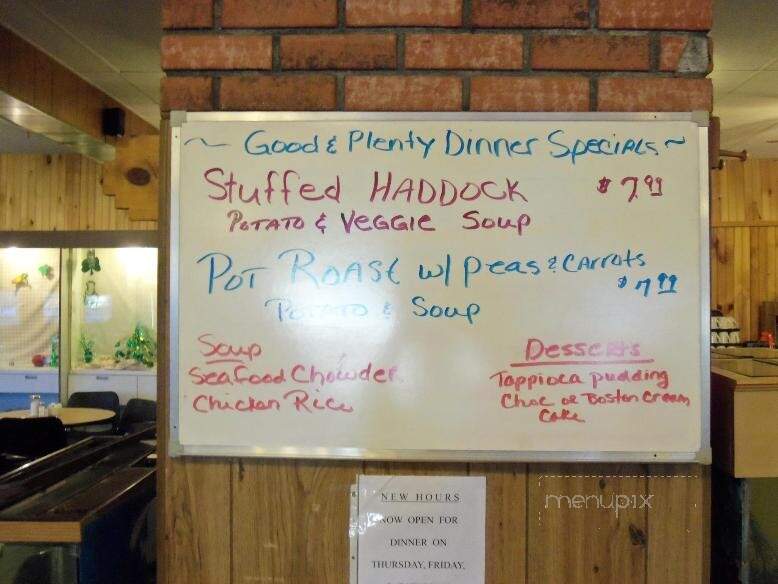 ~ Good & Plenty Dinner Specials ~
Stuffed HADDOCK $7.99
Potato & Veggie Soup
Pot Roast w/ Peas & Carrots
$7.99
Potato & Soup
Soup
Seafood Chowder
Chicken Rice
Desserts
Tappioca pudding
Choc or Boston Cream
Cake
NEW HOURS
NOW OPEN FOR
DINNER ON
THURSDAY, FRIDAY,
menupix